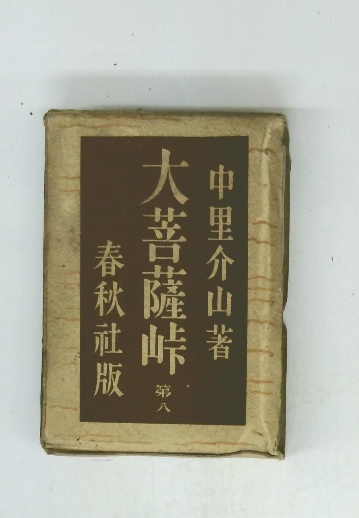 中里介山著
大菩薩峠 第八
春秋社版